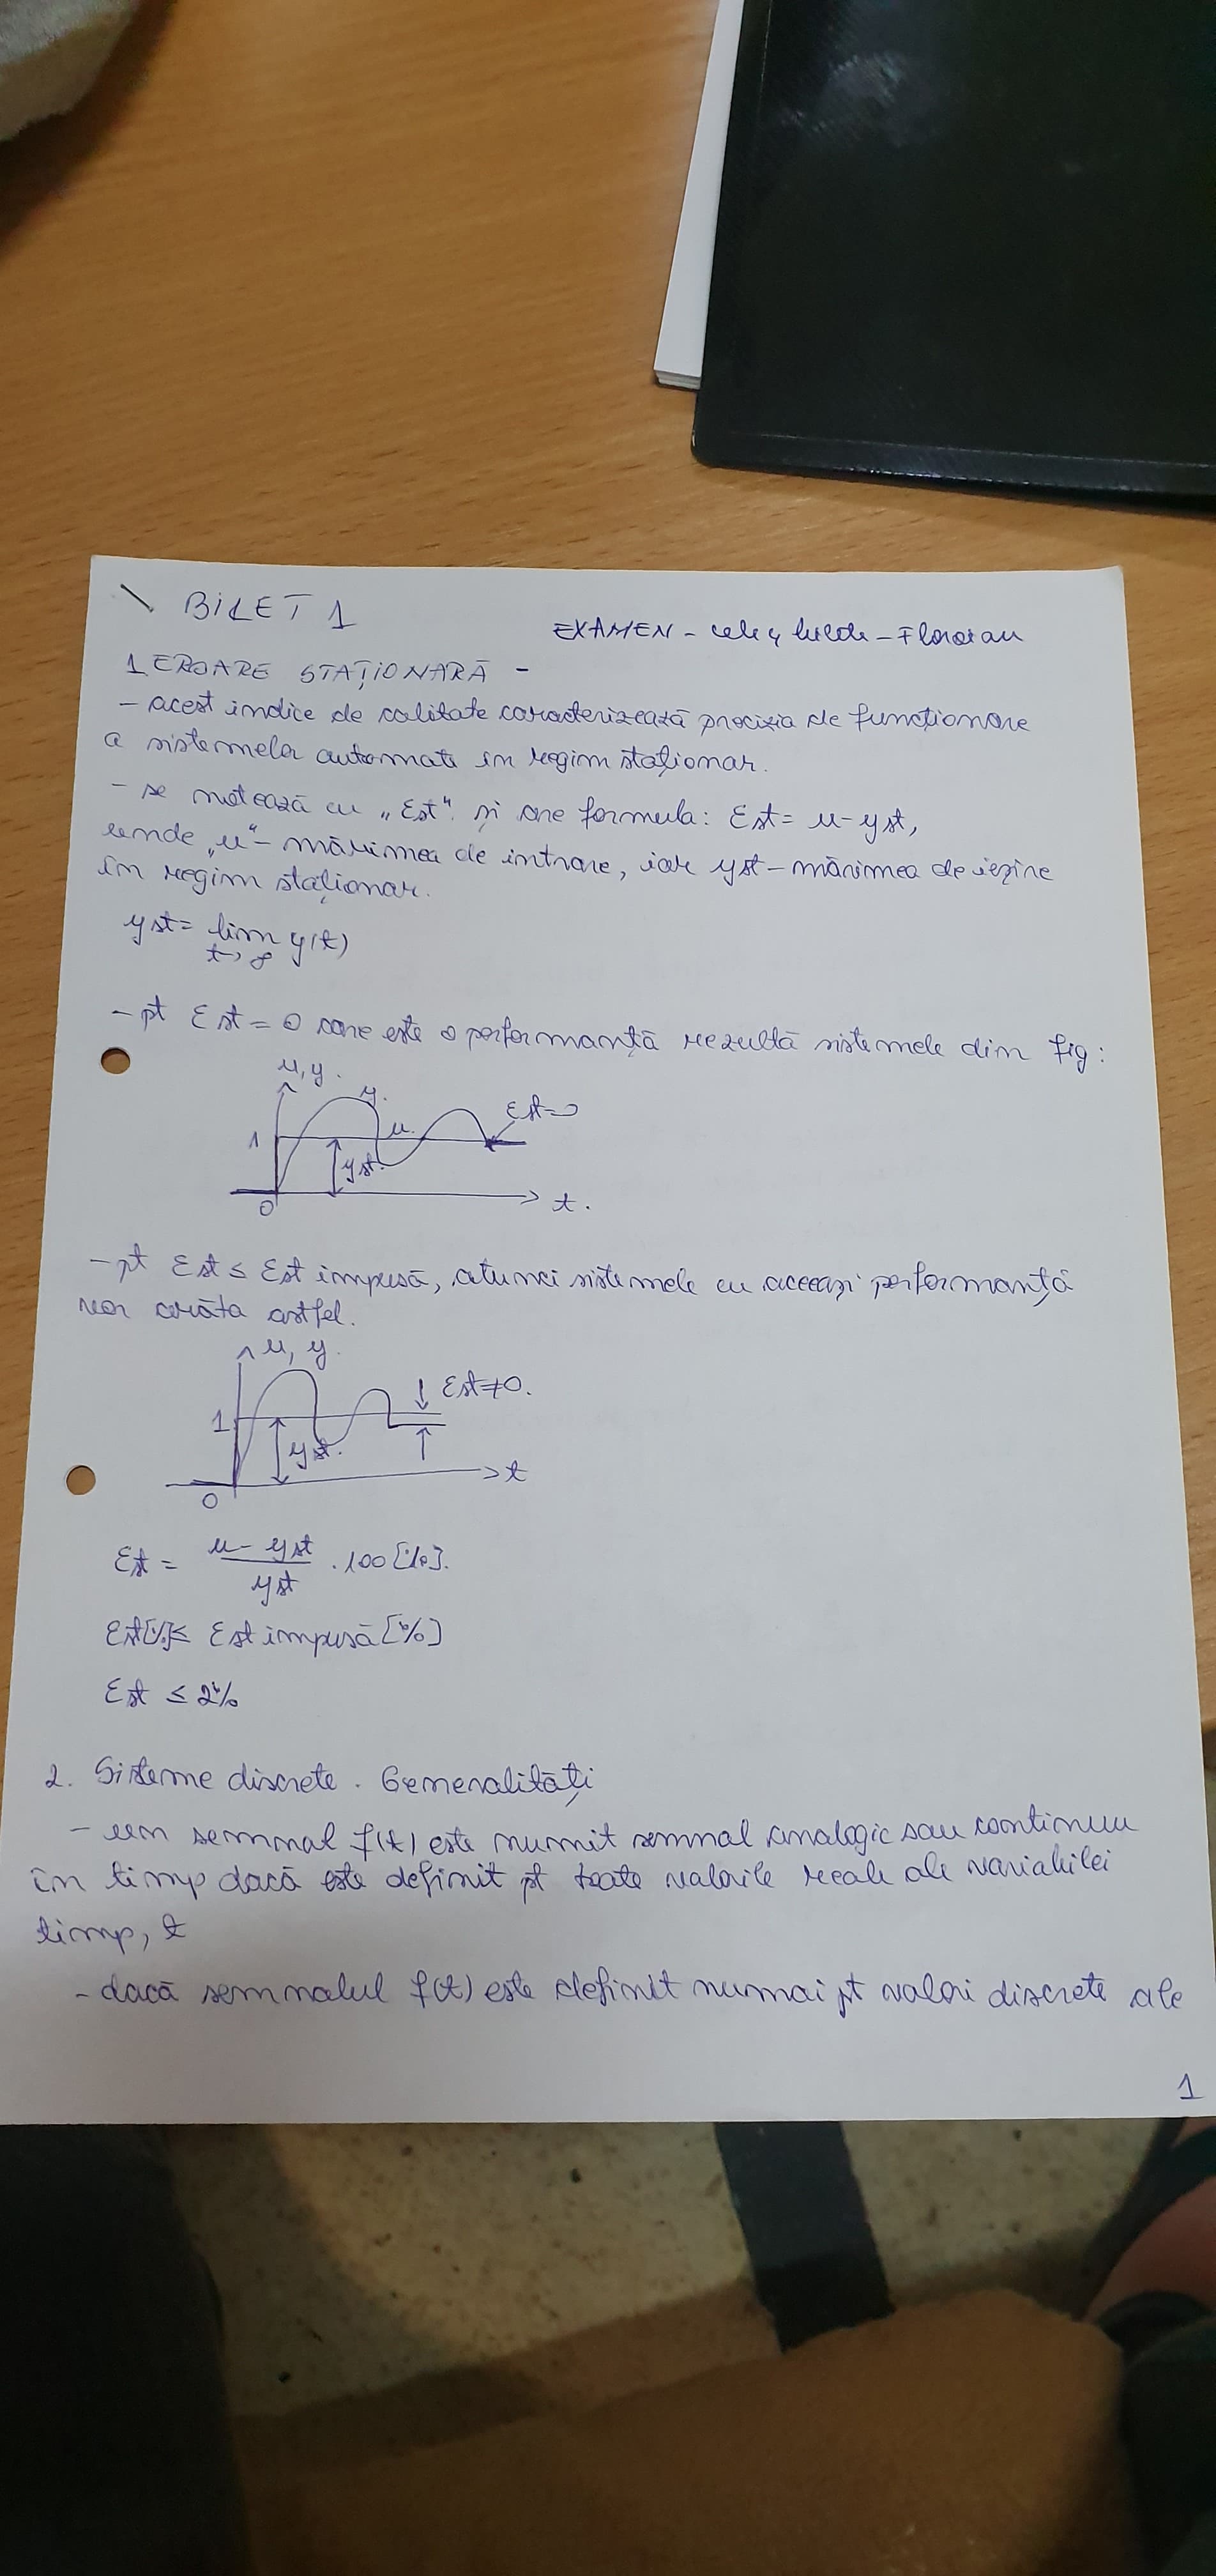 BILET 1
EXAMEN - cele 4 bilete - Florean
1. EROARE STAȚIONARĂ -
- acest indice de calitate caracterizează precizia de funcționare
a sistemelor automate în regim staționar.
- se notează cu „Est" și are formula: Est = u - yst,
unde „u" - mărimea de intrare, iar yst - mărimea de ieșire
în regim staționar.
yst = lim y(t)
t→∞
- pt Est = 0 care este o performanță rezultă sistemele din fig:
u, y.
y.
Est=0
1
u.
yst.
0
t.
- pt Est ≤ Est impusă, atunci sistemele cu aceeași performanță
vor arăta astfel.
u, y.
Est≠0.
1
yst.
t
0
Est = u - yst / yst . 100 [%].
Est[%] ≤ Est impusă [%]
Est ≤ 2%
2. Sisteme discrete. Generalități
- un semnal f(t) este numit semnal analogic sau continuu
în timp dacă este definit pt toate valorile reale ale variabilei
timp, t
- dacă semnalul f(t) este definit numai pt valori discrete ale
1